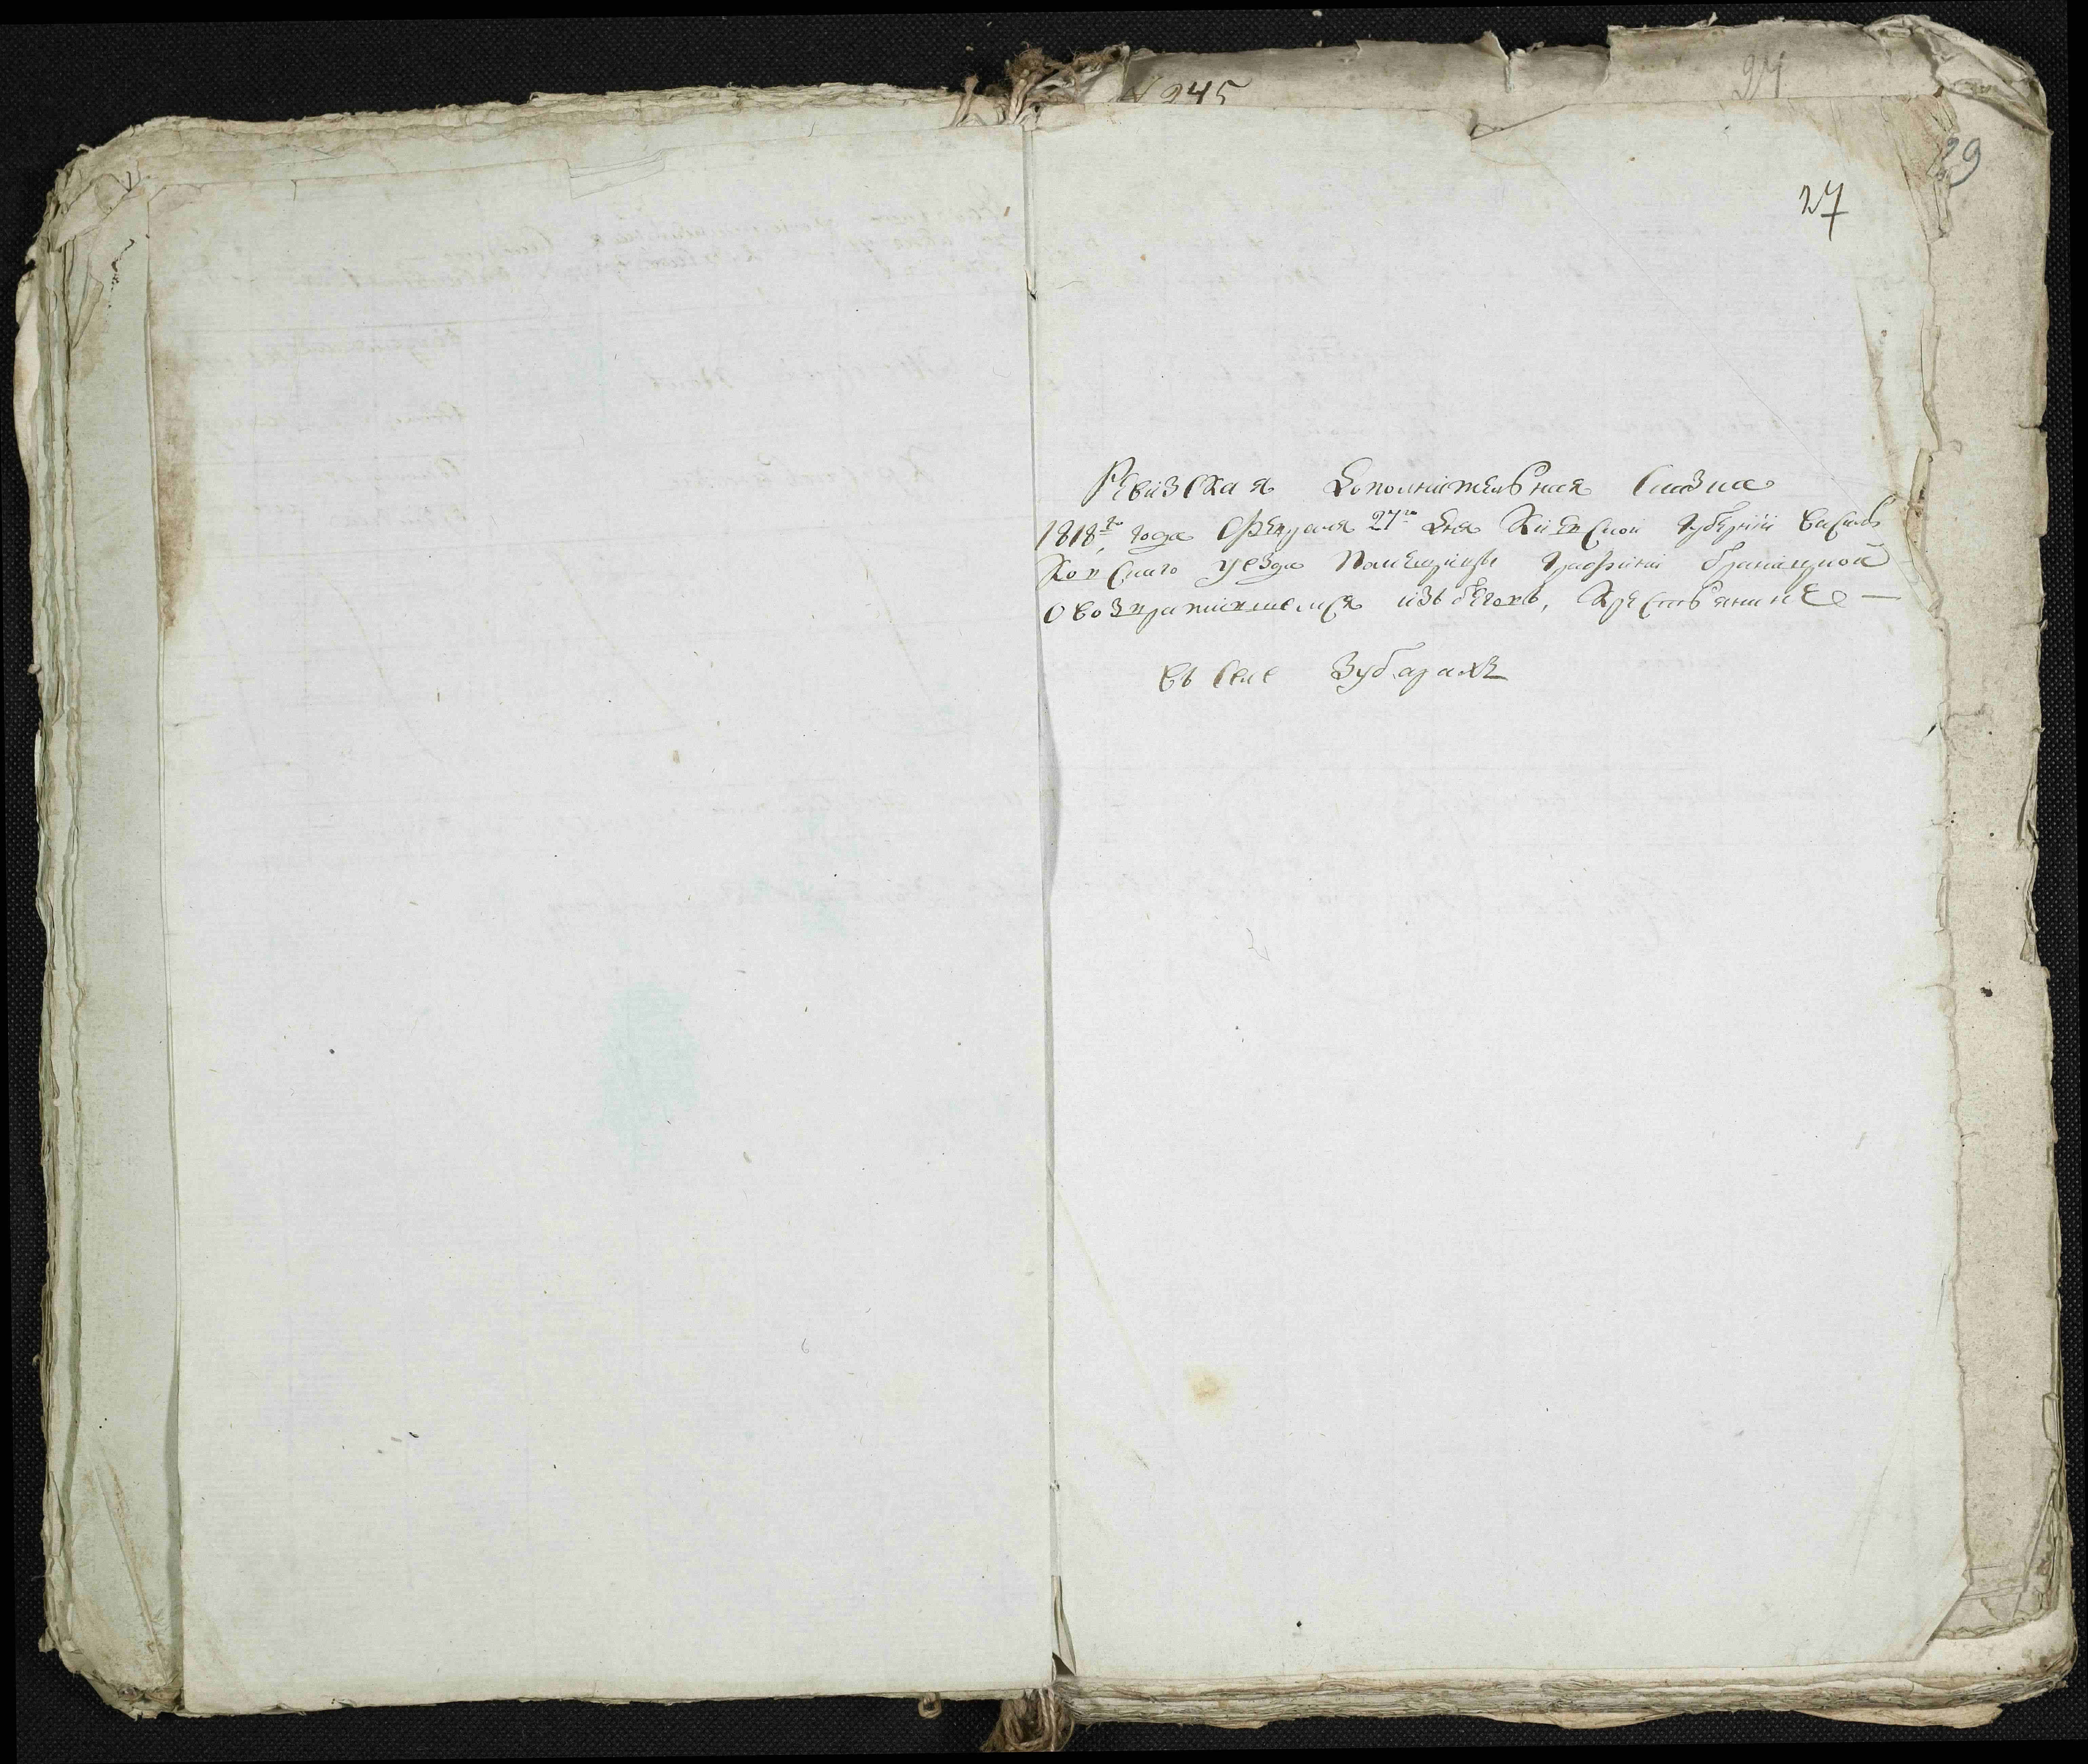 № 245
27
29
27
Ревизская дополнительная сказка
1818го года Февраля 27го дня Киевской губернии василь
ковскаго уезда Помещицы Графини браницкой
о возвратившемся изъ бегохъ, Крестьянине —
въ селе Зубарахъ